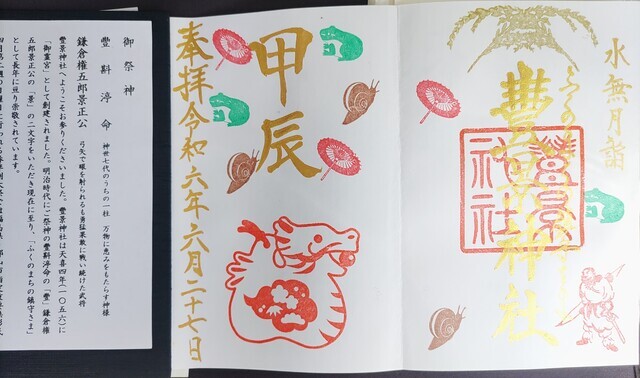 水無月詣
ふくの
豊景神社
豊景
神社
甲辰
奉拝令和六年六月二十七日
御祭神
豐斟渟命 神世七代のうちの一社 万物に恵みをもたらす神様
鎌倉権五郎景正公 弓矢で瞳を射られるも勇猛果敢に戦い続けた武将
豐景神社へようこそお参りくださいました。豐景神社は天喜四年(一〇五六)に
「御霊宮」として創建されました。明治時代にご祭神の豐斟渟命の「豐」鎌倉権
五郎景正公の「景」の二文字をいただき現在に至り、「ふくのまちの鎮守さま」
として長年に亘り崇敬されています。